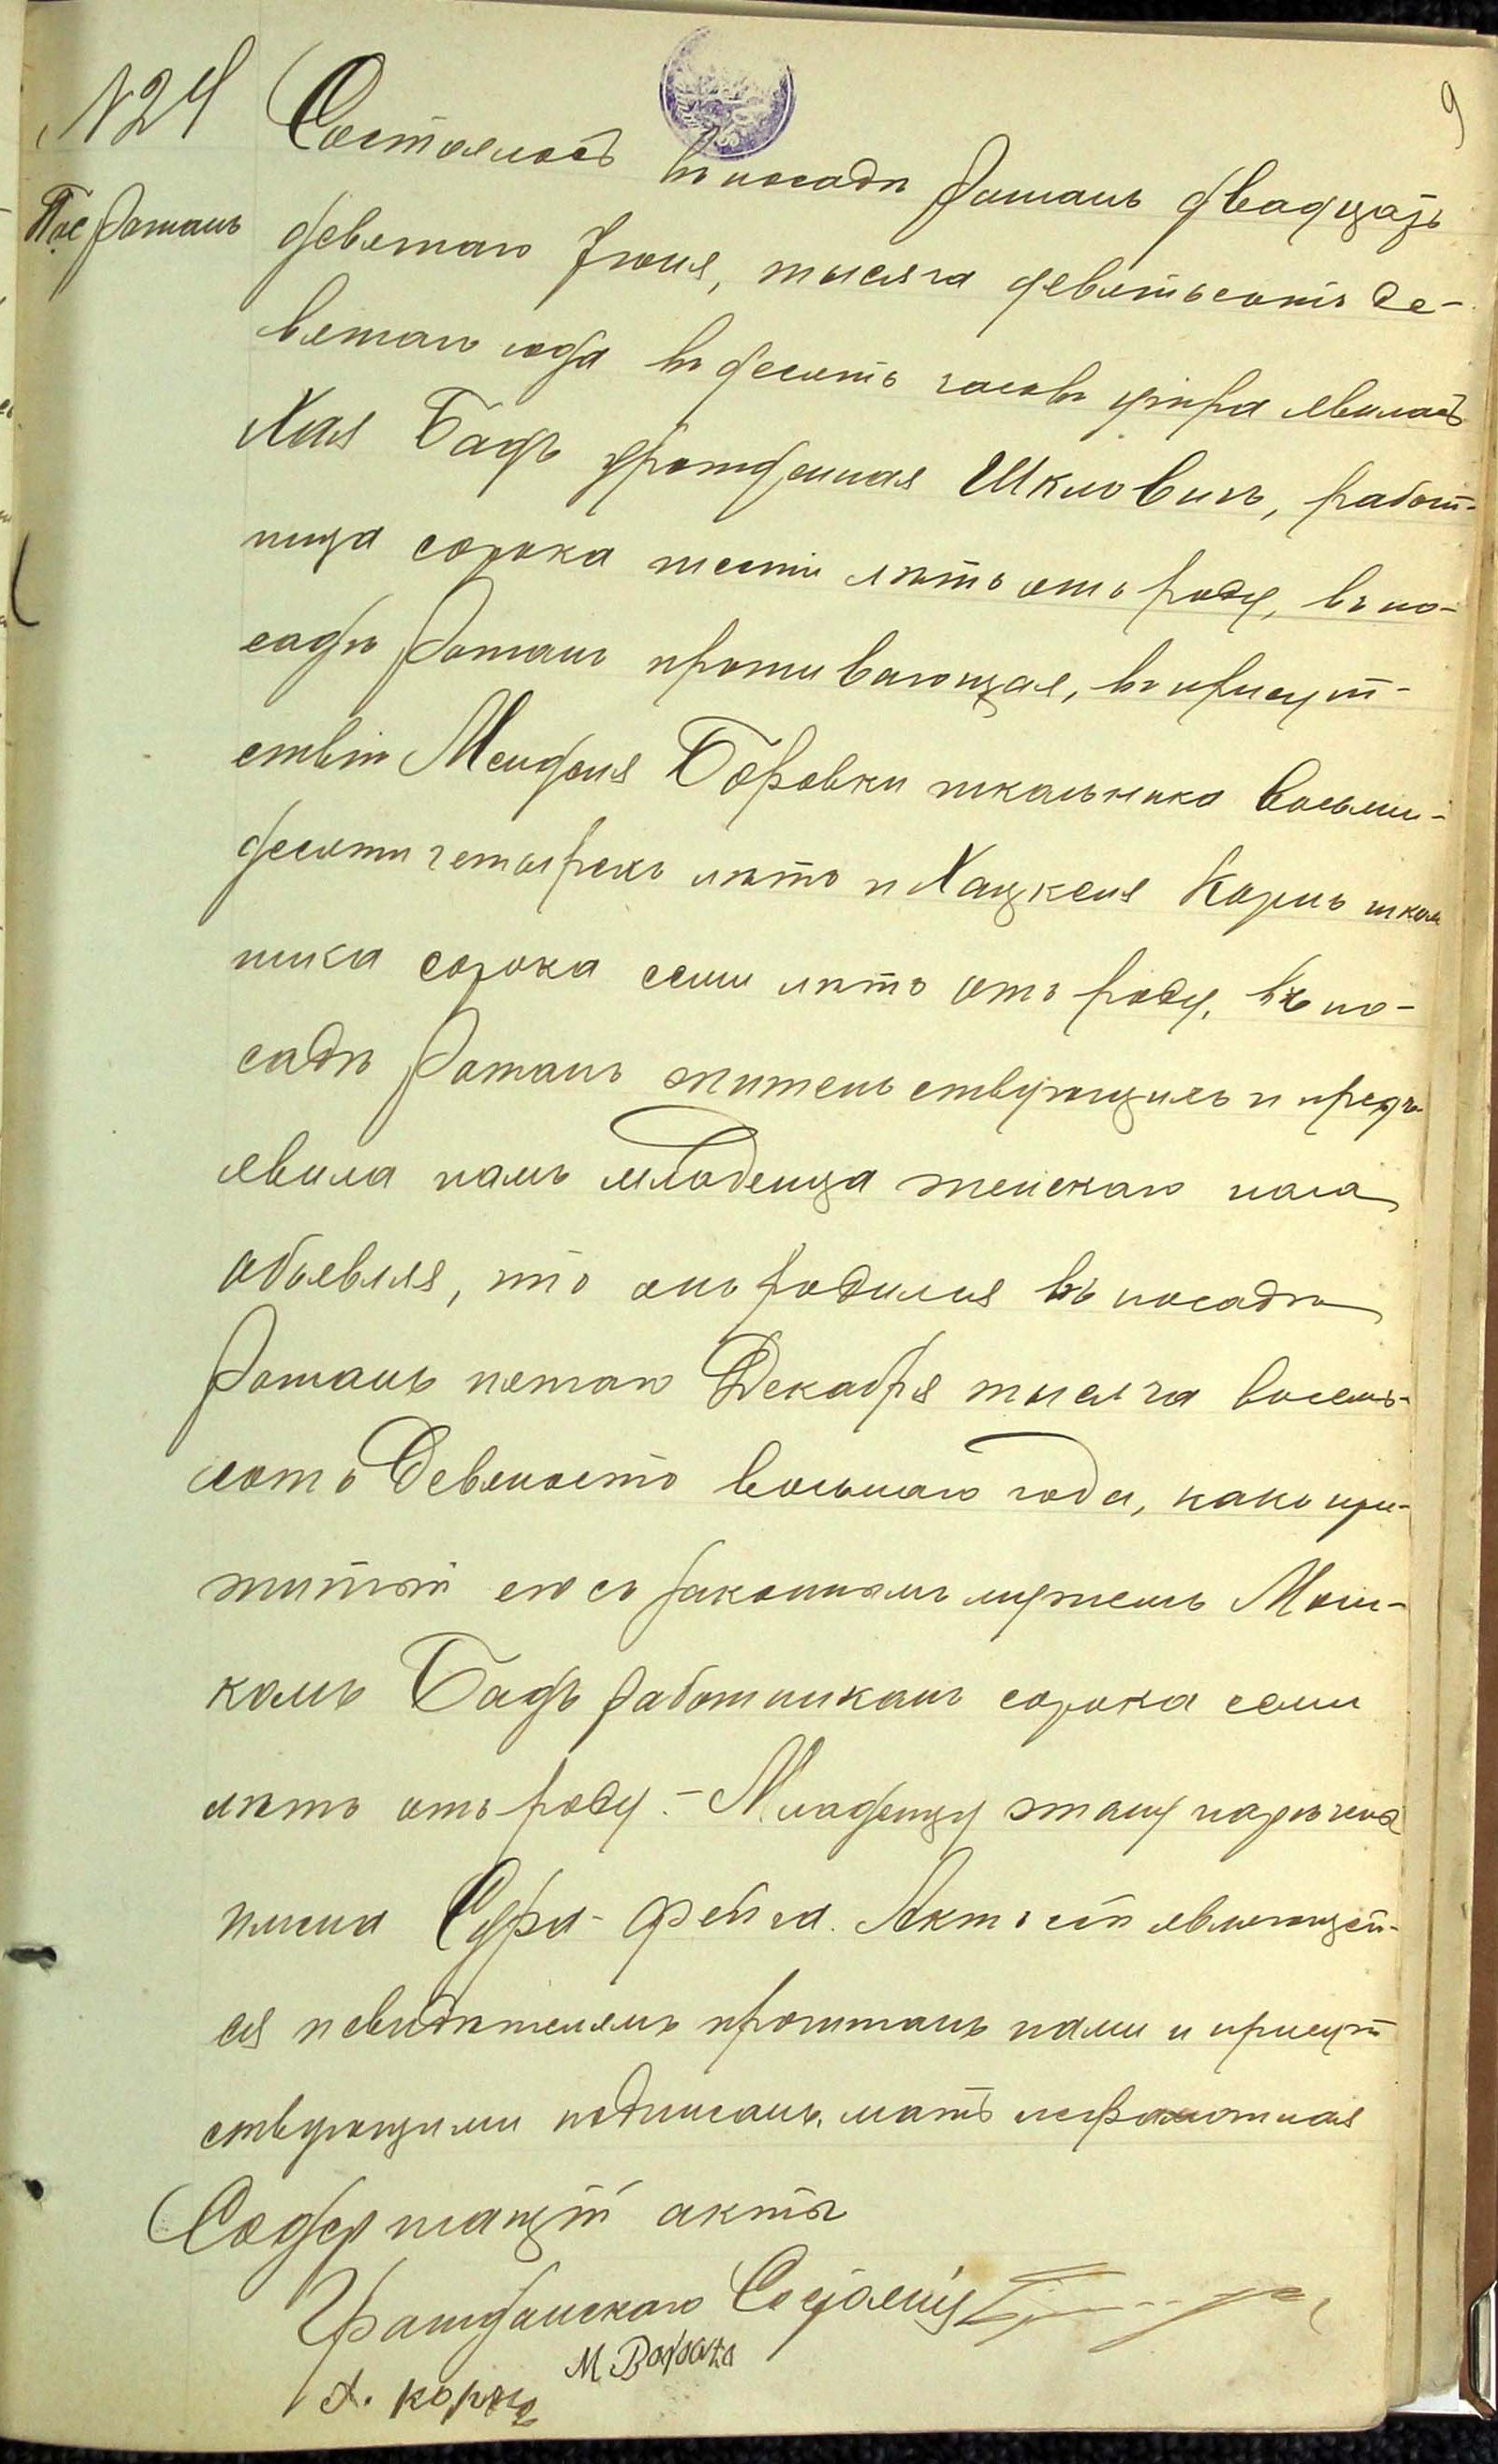 9
№ 24 Состоялось въ посадѣ Ротань двадцать
Пос Ротань девятаго Іюня, тысяча девятьсотъ де-
вятаго года въ десять часовъ утра явилась
Хая Бадъ урожденная Шкловинъ, работ-
ница сорока шести лѣтъ отъ роду, въ по-
садѣ Ротань проживающая, въ присут-
ствіи Менделя Боровки школьника восьми-
десяти четырехъ лѣтъ и Хацкеля Корнъ школь
ника сорока семи лѣтъ отъ роду, въ по-
садѣ Ротань жительствующихъ и предъ
явила намъ младенца женскаго пола
объявляя, что онъ родился въ посадѣ
Ротань пятаго Декабря тысяча восемь-
сотъ девяносто восьмаго года, какъ при-
житый ею съ законнымъ мужемъ Мош-
комъ Бадъ работникомъ сорока семи
лѣтъ отъ роду.- Младенцу этому наречена
имена Сура-Фейга. Актъ сей являющей-
ся и свидѣтелямъ прочитанъ нами и присут
ствующими подписанъ. мать неграмотная
Содержащій акты
Гражданскаго Состоянія
М Воровка
Х. Корнъ